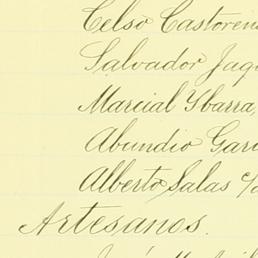 Celso Castoren
Salvador Jaq
Marcial Ybarra,
Abundio Garc
Alberto Salas c/
Artesanos.